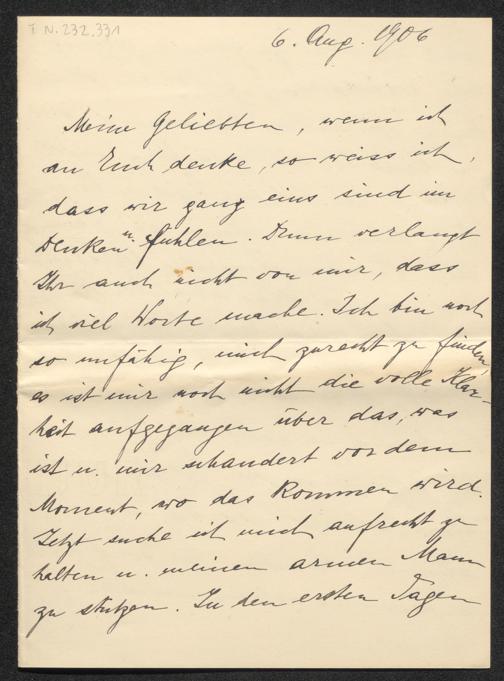 I N. 232.331
6. Aug. 1906
Meine Geliebten, wenn ich
an Euch denke, so weiss ich,
dass wir ganz eins sind im
Denken u. fühlen. Drum verlangt
Ihr auch nicht von mir, dass
ich viel Worte mache. Ich bin noch
so unfähig, mich zurecht zu finden,
es ist mir noch nicht die volle Klar-
heit aufgegangen über das, was
ist u. mir schaudert vor dem
Moment, wo das kommen wird.
Jetzt suche ich mich aufrecht zu
halten u. meinen armen Mann
zu stützen. In den ersten Tagen